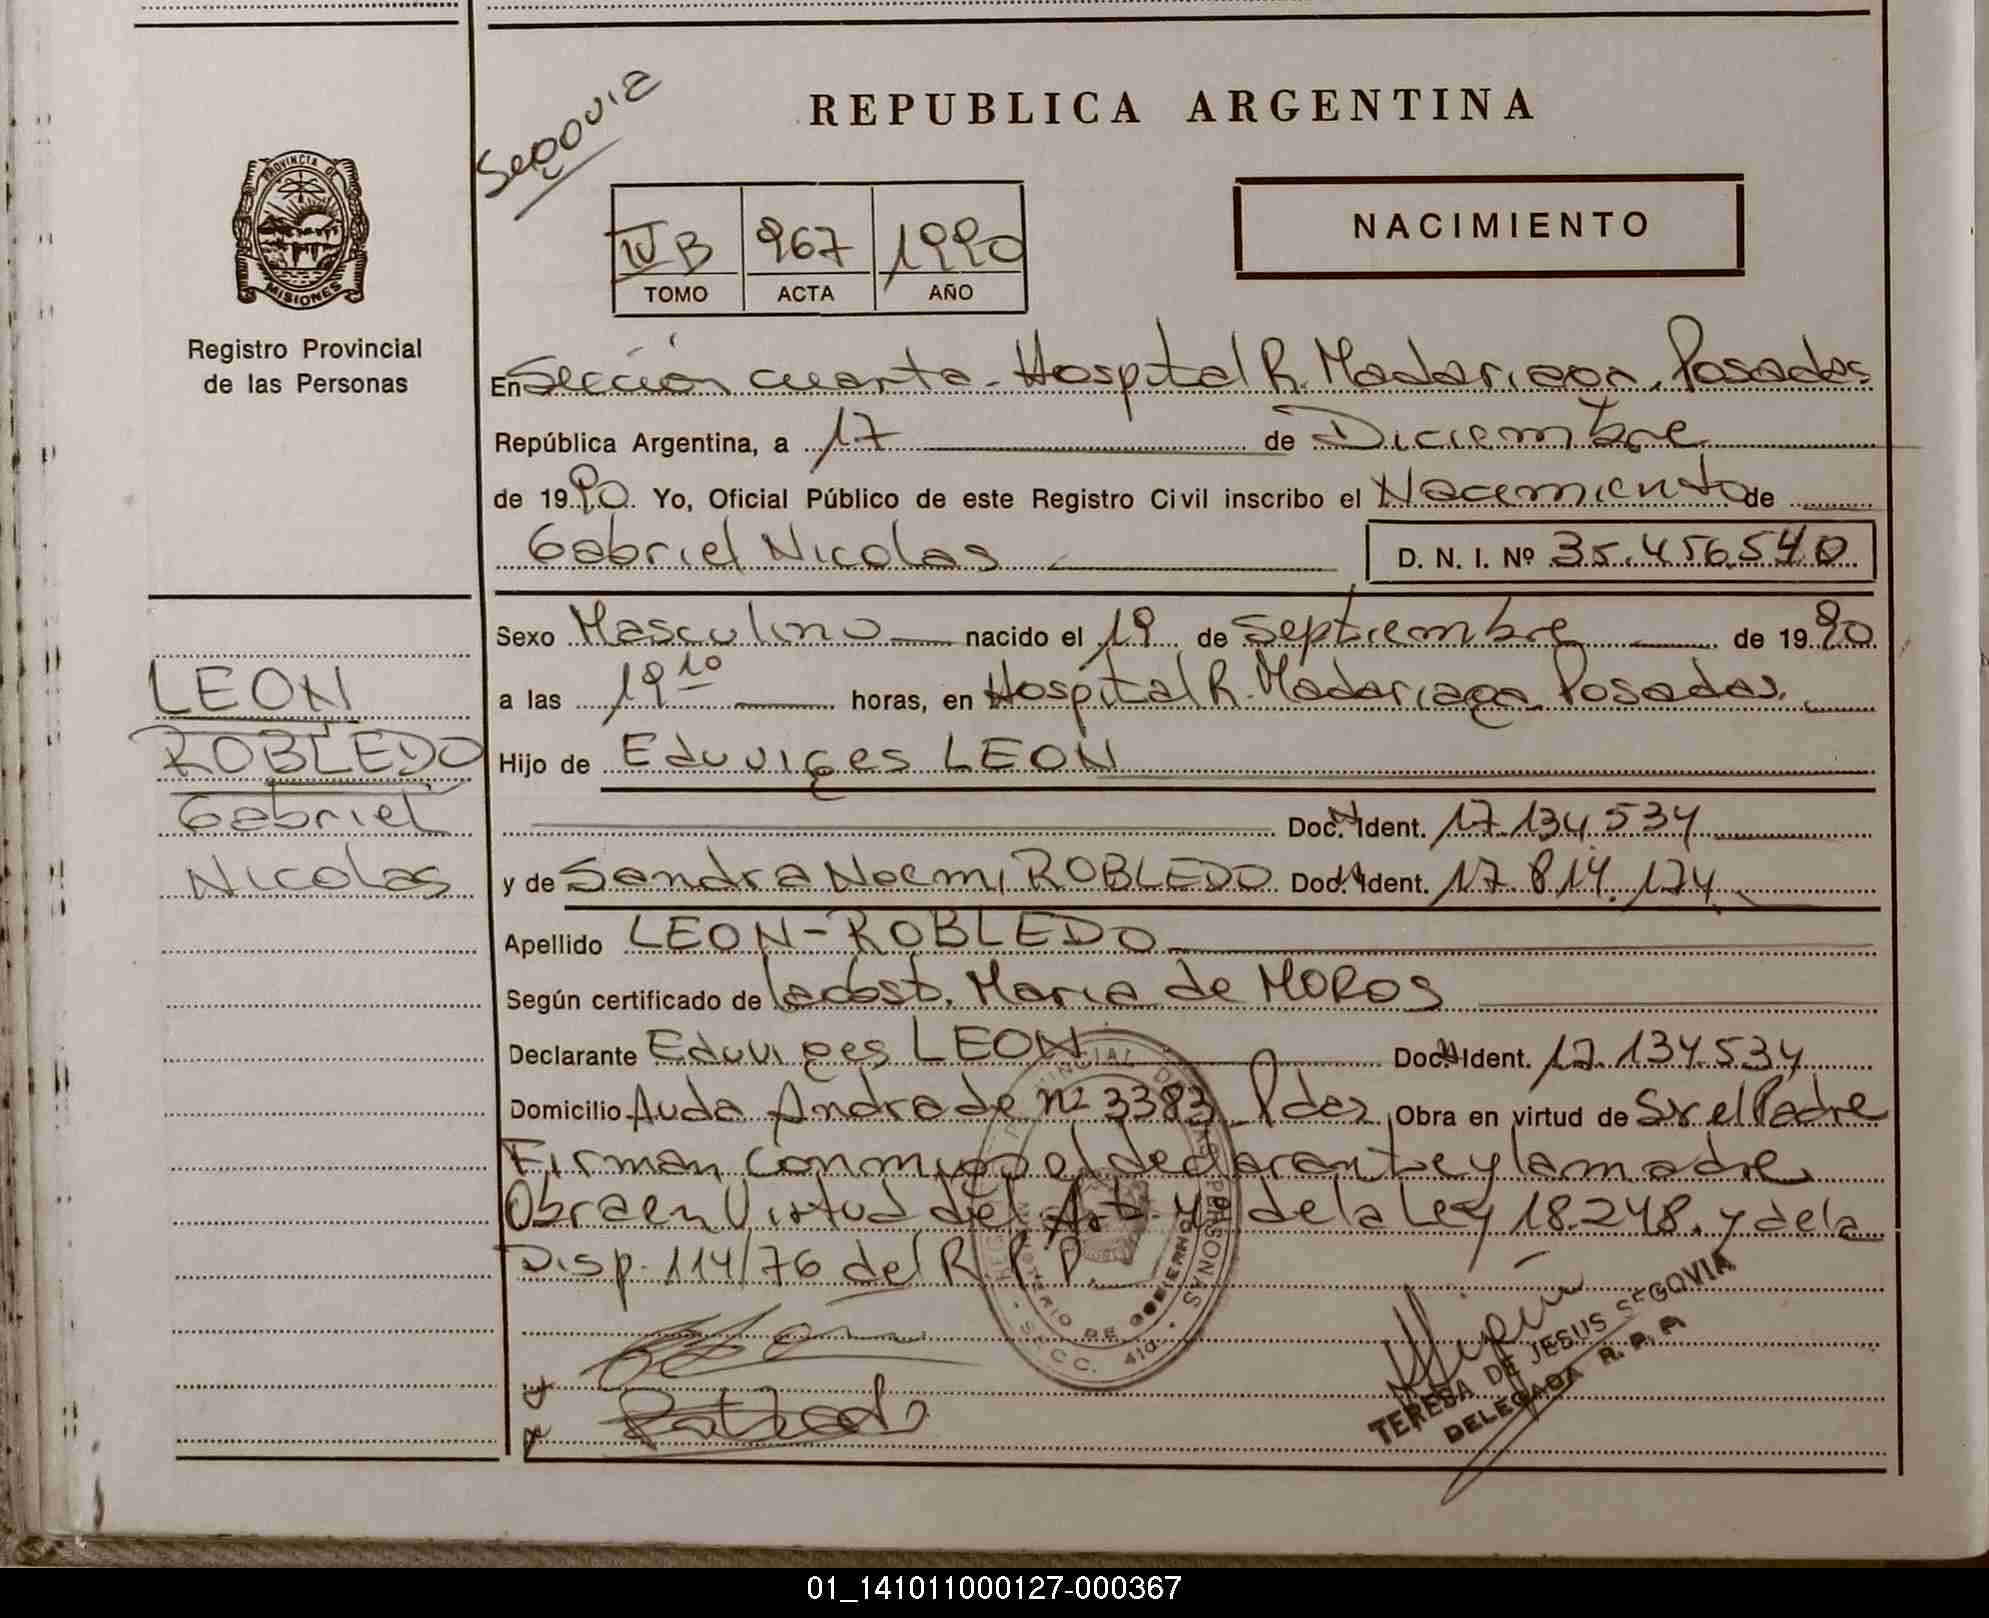 Segovia
REPUBLICA ARGENTINA
PROVINCIA DE
MISIONES
Registro Provincial
de las Personas
IV B 967 1990
TOMO ACTA AÑO
NACIMIENTO
En Sección cuarta - Hospital R. Madariaga. Posadas
República Argentina, a 17 de Diciembre
de 1990 Yo, Oficial Público de este Registro Civil inscribo el Nacimiento de
Gabriel Nicolas D. N. I. Nº 35.456.540
Sexo Masculino nacido el 19 de Septiembre de 1990
a las 19 10 horas, en Hospital R. Madariaga Posadas.
Hijo de Eduviges LEON
Doc. Ident. 17.134.534
y de Sandra Noemi ROBLEDO Doc. Ident. 17.814.174
Apellido LEON-ROBLEDO
Según certificado de la obst. Maria de MOROS
Declarante Eduviges LEON Doc. Ident. 17.134.534
Domicilio Avda Andrade nº 3383 Pdas Obra en virtud de Sr el Padre
Firman conmigo el declarante y la madre
Obra en Virtud del Art. 4 de la Ley 18.248. y de la
Disp. 114/76 del R.P.P.
LEON
ROBLEDO
Gabriel
Nicolas
REGISTRO PROVINCIAL DE LAS PERSONAS
MINISTERIO DE GOBIERNO
SECC. 4ta.
TERESA DE JESUS SEGOVIA
DELEGADA R. P. P.
01_141011000127-000367